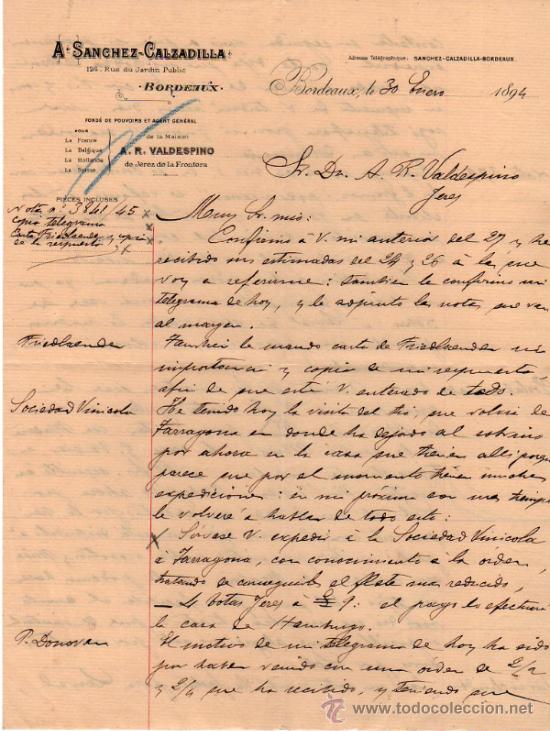 A. SANCHEZ-CALZADILLA
124, Rue du Jardin Public
BORDEAUX
Adresse Télégraphique: SANCHEZ-CALZADILLA-BORDEAUX
Bordeaux, le 30 Enero 1894
FONDÉ DE POUVOIRS ET AGENT GÉNÉRAL
POUR
La France
La Belgique
La Hollande
La Suisse
de la Maison
A. R. VALDESPINO
de Jerez de la Frontera
Sr. Dn. A. R. Valdespino
Jerez
PIÈCES INCLUSES
Nota nº 3841/45
copia telegrama
Carta Friedlaender y copia
de la respuesta
Muy Sr. mio:
Confirmo á V. mi anterior del 27 y he
recibido sus estimadas del 24 y 26 á la que
voy a referirme: tambien le confirmo mi
telegrama de hoy, y le adjunto las notas que van
al margen.
Friedlaender
Tambien le mando carta de Friedlaender
importancia y copia de mi respuesta
afin de que esté V. enterado de todo.
Sociedad Vinicola
He tenido hoy la visita del que volvia de
Tarragona en donde ha dejado al
por ahora en la casa que tienen alli porque
parece que por el momento tienen muchas
expediciones: en mi proxima con mas tiempo
le volveré a hablar de todo esto:
Sirvase V. expedir á la Sociedad Vinicola
á Tarragona, con conocimiento á la orden,
tratando de conseguir el flete mas reducido,
4 botas Jerez á £ 9: el pago lo efectuará
la casa de Hamburgo.
P. Donovan
El motivo de mi telegrama de hoy ha sido
por haber venido con una orden de 2/2
y 2/4 que ha recibido, y teniendo que
todocoleccion.net